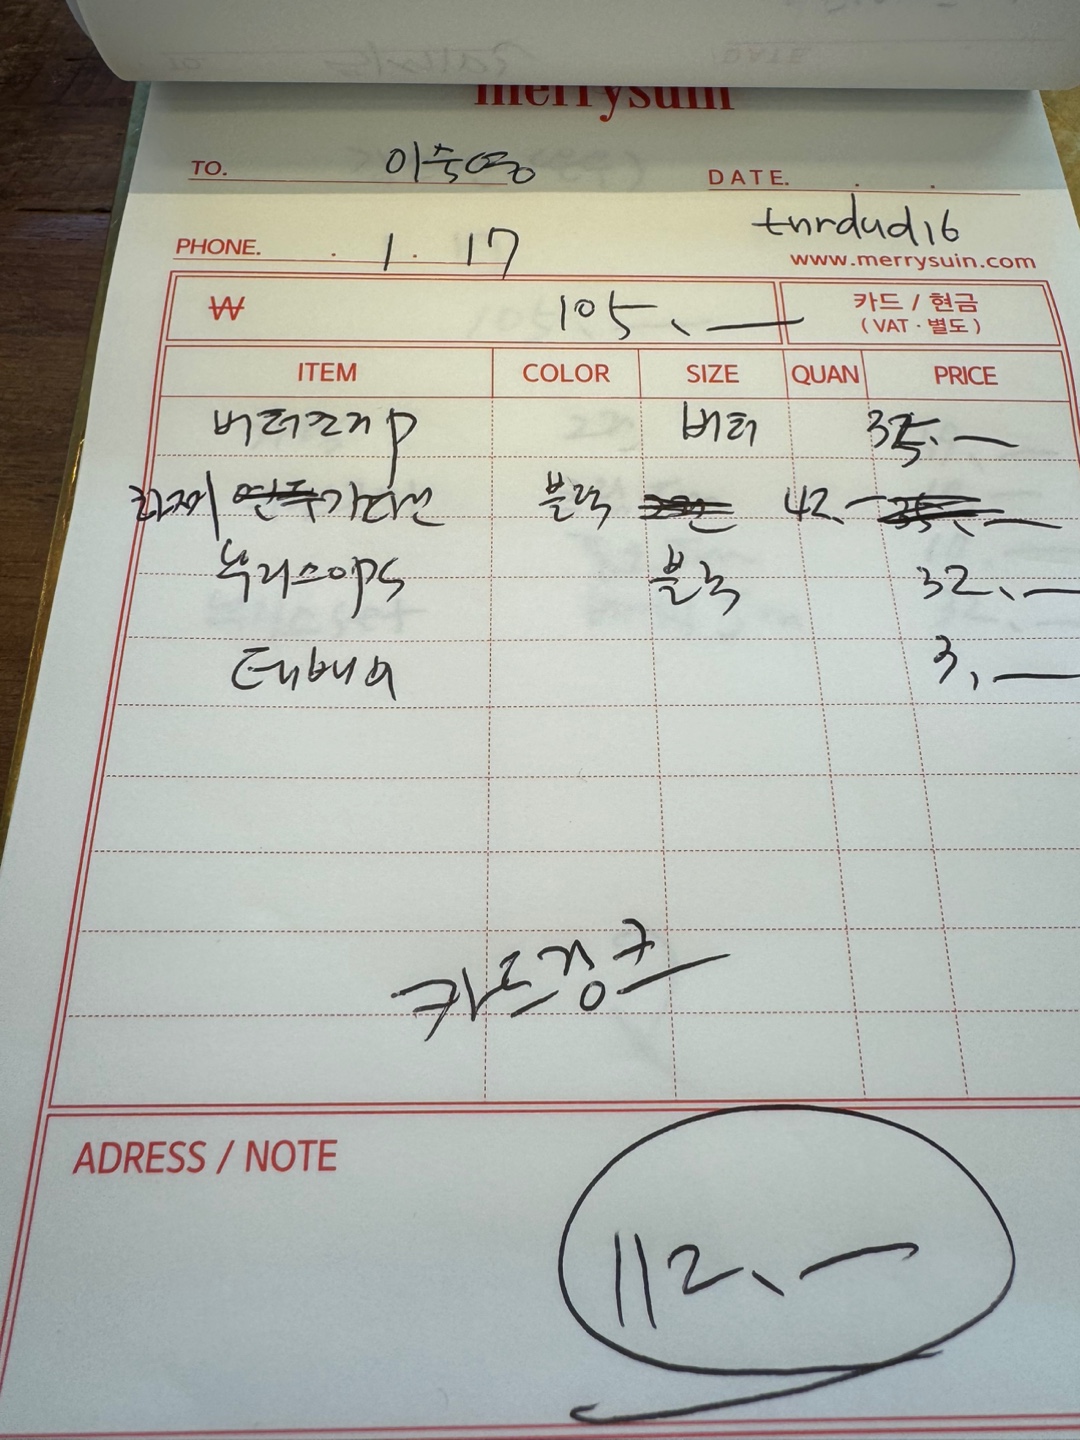 merrysuin
TO. 이숙영 DATE. . .
PHONE. . 1. 17 tnrdud16
www.merrysuin.com
₩ 105,— 카드 / 현금
( VAT · 별도 )
ITEM COLOR SIZE QUAN PRICE
버터조거P 버터 35.—
가디건 블랙 42.—
블랙 32.—
택배비 3,—
ADRESS / NOTE
112,—